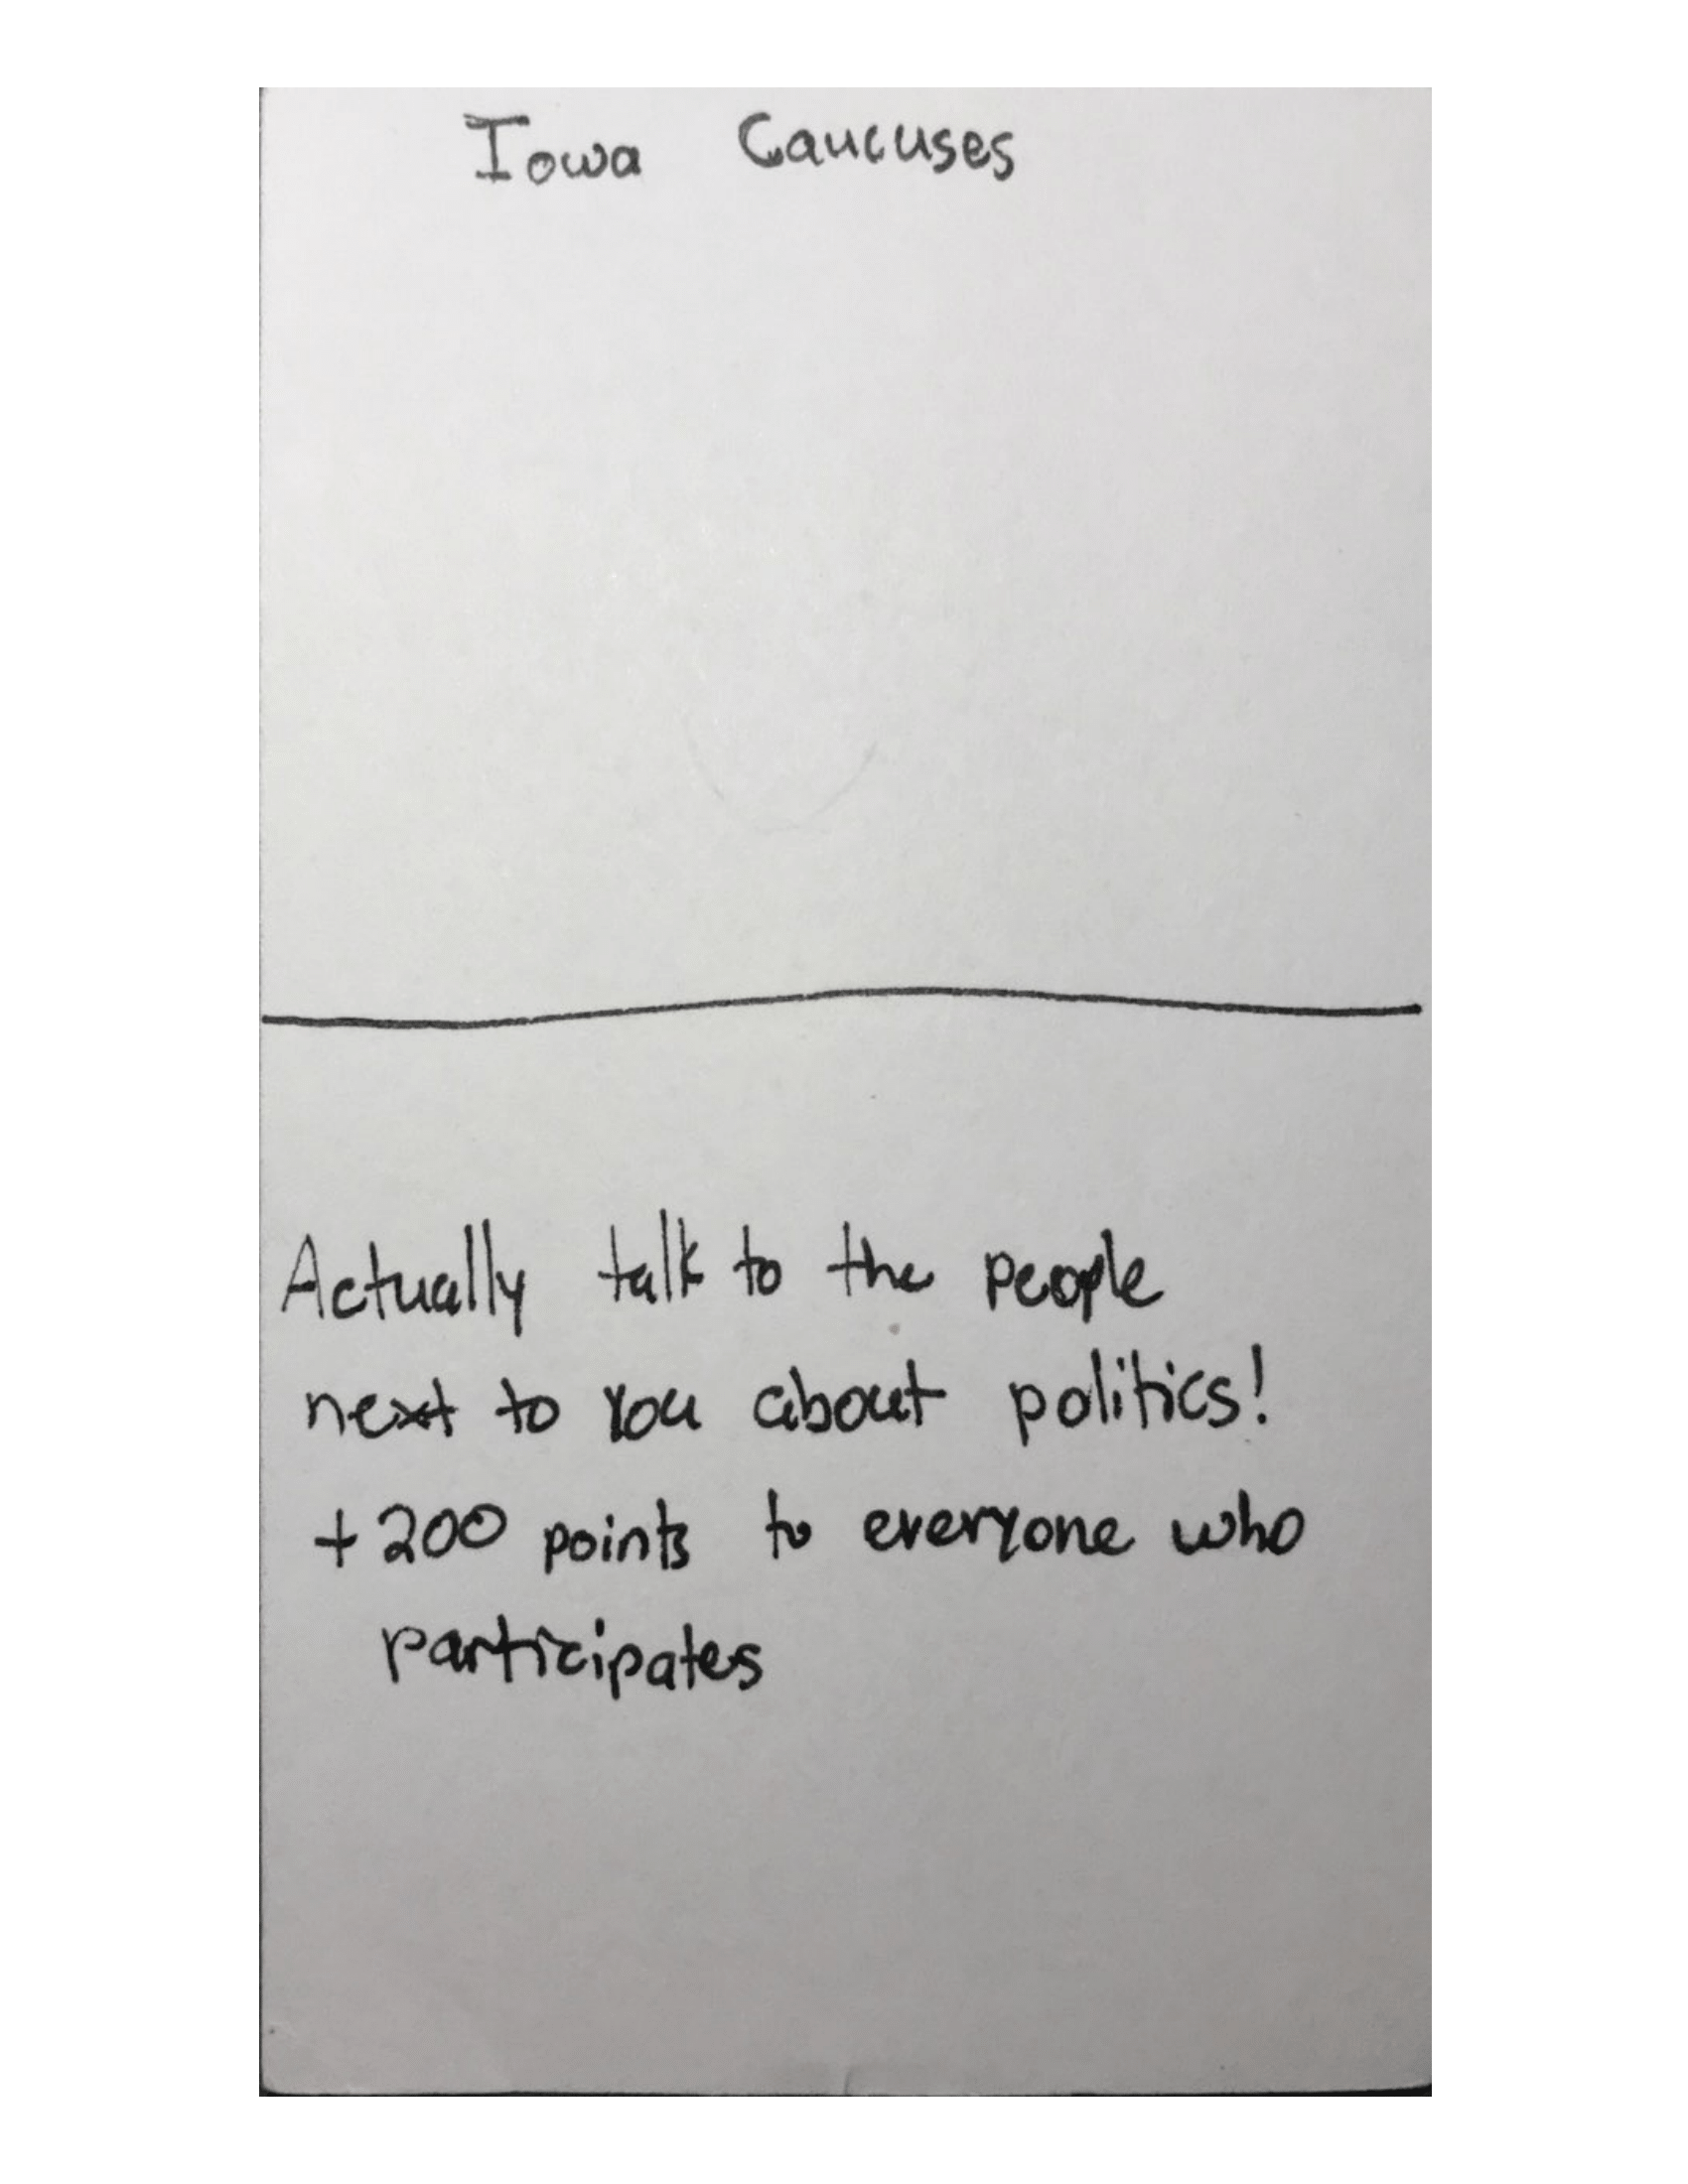 Iowa Caucuses
Actually talk to the people
next to you about politics!
+200 points to everyone who
participates